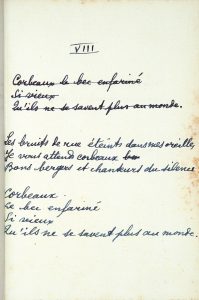 VIII
Corbeaux le bec enfariné
Si vieux
Qu'ils ne se savent plus au monde.
Les bruits de rue éteints dans mes oreilles
Je vous attend corbeaux
Bons bergers et chanteurs du silence
Corbeaux
Le bec enfariné
Si vieux
Qu'ils ne se savent plus au monde.